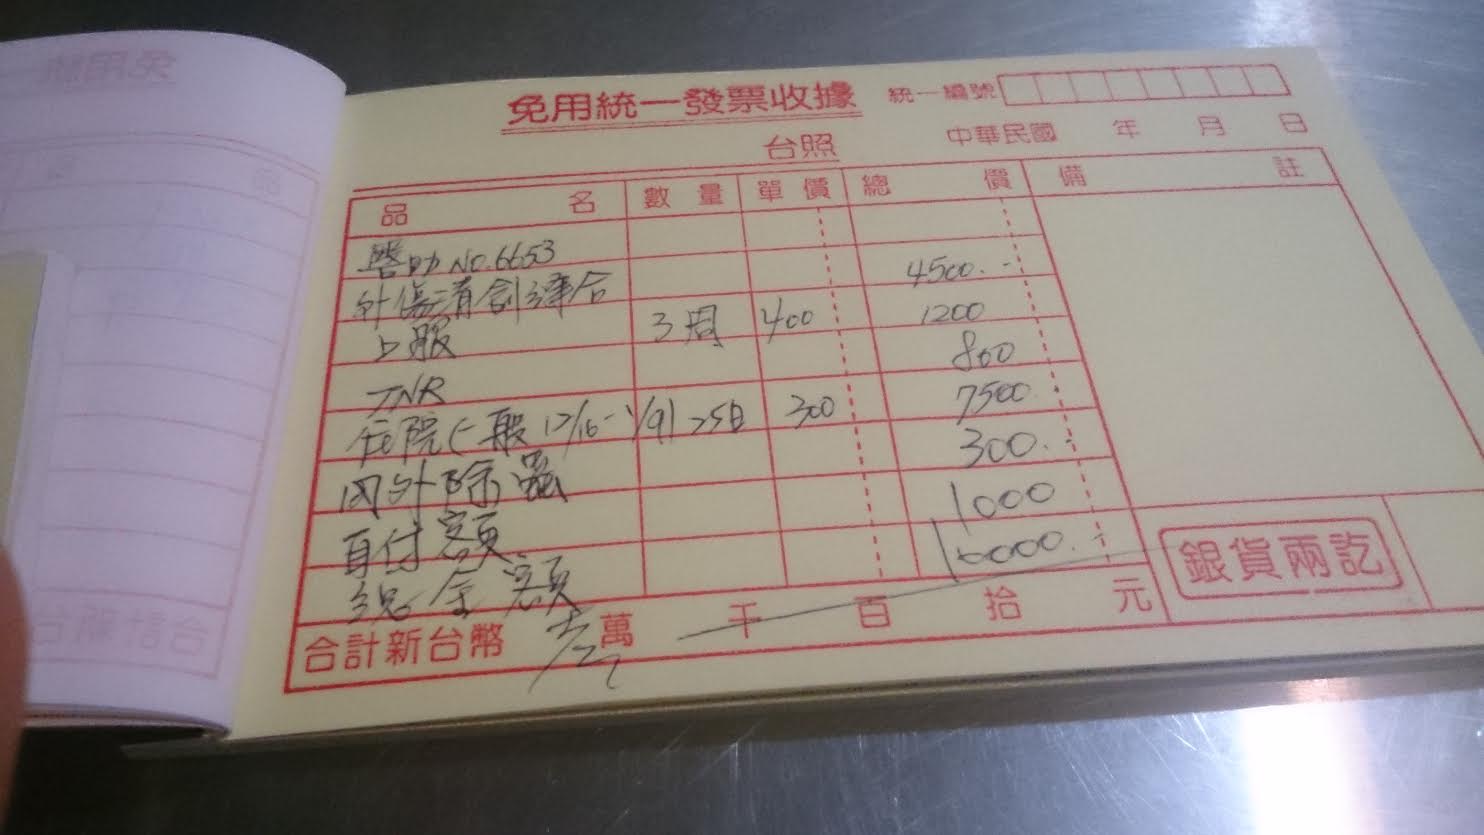 免用統一發票收據
統一編號
台照
中華民國 年 月 日
品名 數量 單價 總價 備註
醫助 No.6653
外傷清創縫合 4500.-
口服 3周 400 1200
TNR 800
住院(一般 12/16-1/9) 25日 300 7500
內外除蟲 300.-
自付額 1000
總金額 10000.-
合計新台幣 壹萬 千 百 拾 元
銀貨兩訖
免用統
合計新台